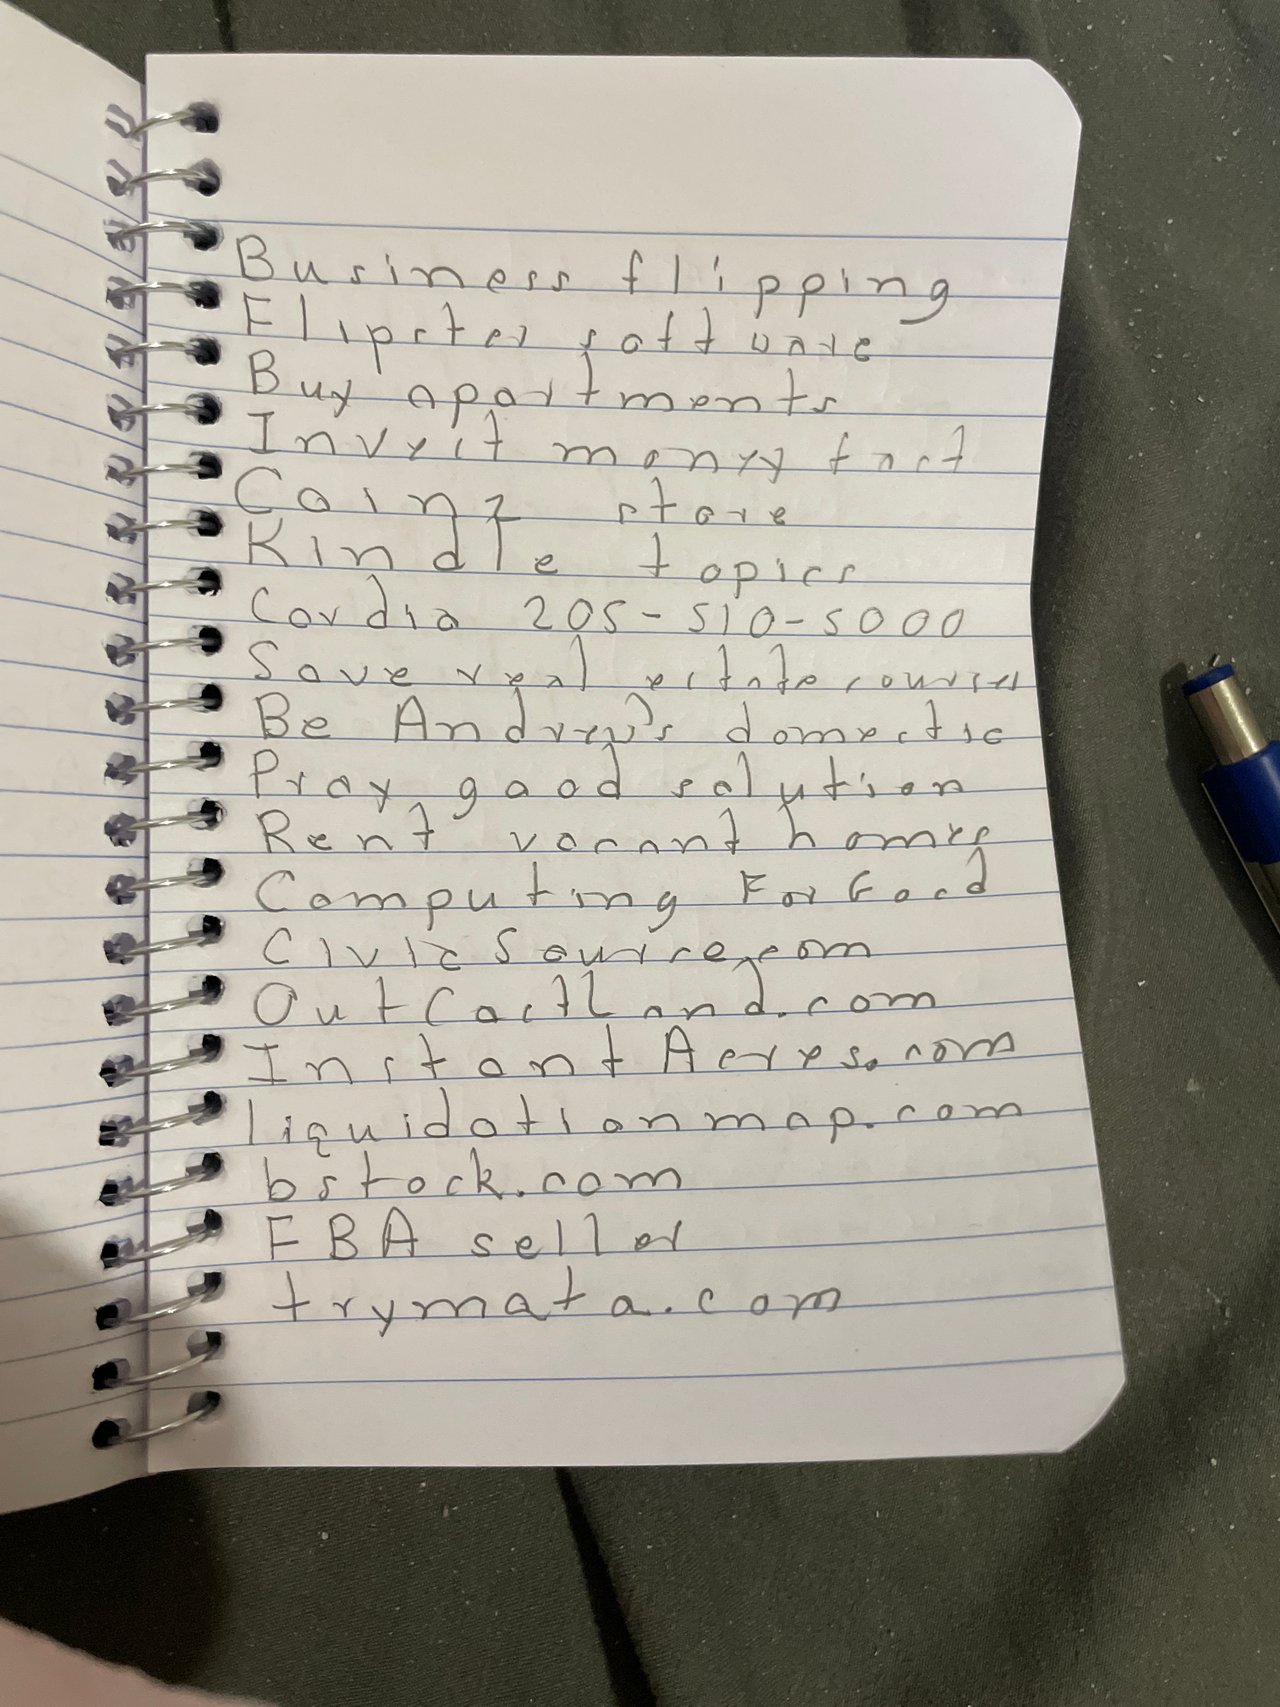 Business flipping
Flipster software
Buy apartments
Invest money fast
Coinz store
Kindle topics
Cordia 205-510-5000
Save real estate courses
Be Andrew's domestic
Pray good solution
Rent vacant homes
Computing For Good
CivicSource.com
OutCastLand.com
InstantAcres.com
liquidationmap.com
bstock.com
FBA seller
trymata.com